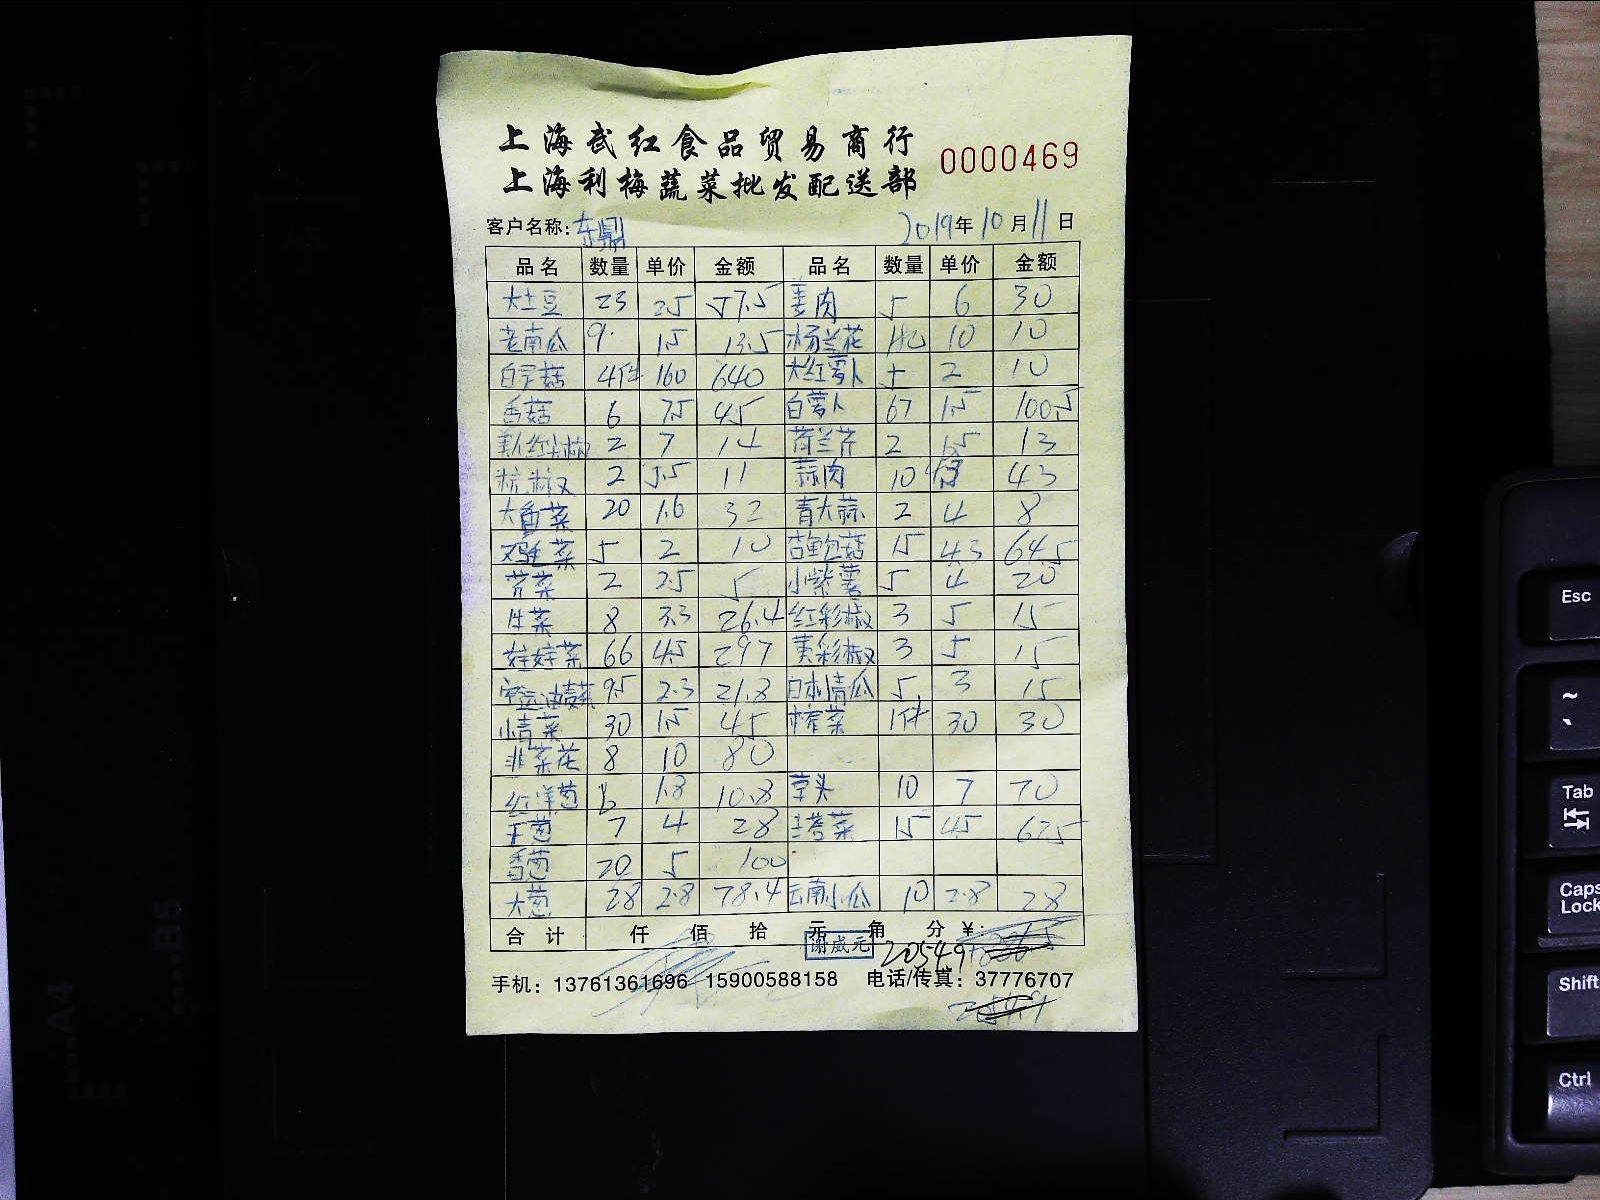 上海武红食品贸易商行
0000469
上海利梅蔬菜批发配送部
客户名称: 东鼎 2019年10月11日
品名 数量 单价 金额 品名 数量 单价 金额
大土豆 23 2.5 57.5 姜肉 5 6 30
老南瓜 9 1.5 13.5 杨兰花 10 10
白灵菇 4件 160 640 大红萝卜 5 2 10
香菇 6 7.5 45 白萝卜 67 1.5 100.5
美人红尖椒 2 7 14 荷兰芹 2 13
2 5.5 11 蒜肉 10 43
大香菜 20 1.6 32 青大蒜 2 4 8
鸡毛菜 5 2 10 杏鲍菇 15 4.3 64.5
芹菜 2 2.5 5 小紫薯 5 4 20
生菜 8 3.3 26.4 红彩椒 3 5 15
娃娃菜 66 4.5 297 黄彩椒 3 5 15
9.5 2.3 21.8 日本青瓜 5 3 15
小青菜 30 1.5 45 榨菜 1件 30 30
韭菜花 8 10 80
红洋葱 6 1.8 10.8 草头 10 7 70
干葱 7 4 28 塔菜 15 4.5 67.5
香葱 20 5 100
大葱 28 2.8 78.4 云南小瓜 10 2.8 28
合计 仟 佰 拾 元 角 分 ¥:
谢成元
20549
手机: 13761361696 15900588158 电话/传真: 37776707
Esc
~
`
Tab
Caps Lock
Shift
Ctrl
B5
A4